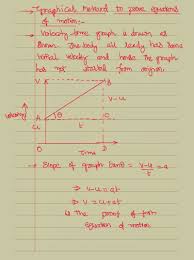 → Graphical Method to prove equations
of motion:-
→ Velocity-time graph is drawn as
shown. The body all ready has some
initial velocity and hence the graph
has not started from origin.
V
B
v-u
Velocity
A
θ
D
u
t
O
Time
→ Slope of graph = v-u/t = a
⇒ v-u = at
⇒ v = u+at
is the proof of first
equation of motion